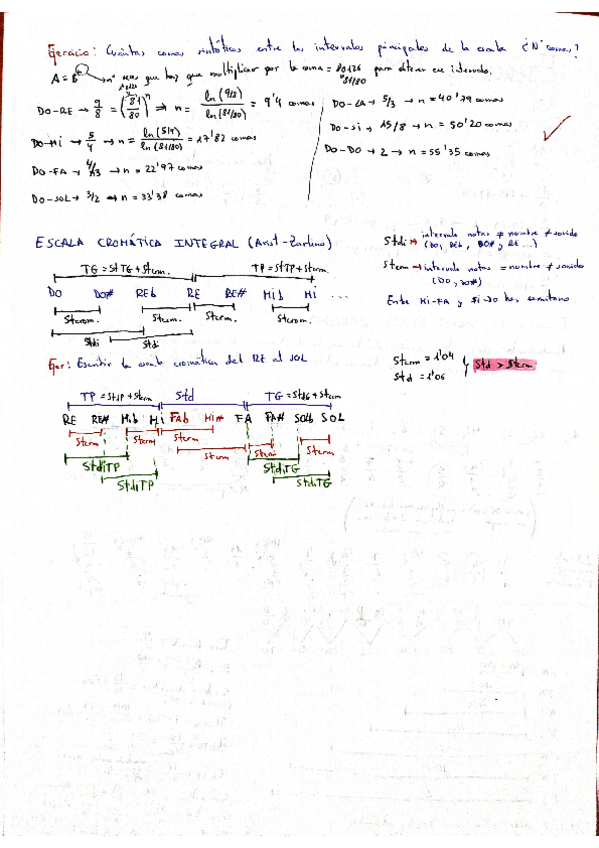 Ejercicio: Cuántas comas sintónicas entre los intervalos principales de la escala ¿Nº comas?
A = Bⁿ → nº veces que hay que multiplicar por la coma = 81/80 para obtener ese intervalo.
DO-RE → 9/8 = (81/80)ⁿ ⇒ n = ln(9/8) / ln(81/80) = 9'4 comas
DO-MI → 5/4 → n = ln(5/4) / ln(81/80) = 17'82 comas
DO-FA → 4/3 → n = 22'97 comas
DO-SOL → 3/2 → n = 33'38 comas
DO-LA → 5/3 → n = 40'79 comas
DO-Si → 15/8 → n = 50'20 comas
DO-DO → 2 → n = 55'35 comas
ESCALA CROMÁTICA INTEGRAL (Arist-Zarlino)
TG = StTG + Stcrm. TP = StTP + Stcrm.
DO DO# REb RE RE# Mib Mi ...
Stcrom. Stcrm. Stcrm. Stcrom.
Stdi Stdi
Stdi → intervalo notas ≠ nombre ≠ sonido
(DO, REb, DO#, RE...)
Stcrm → intervalo notas = nombre ≠ sonido
(DO, DO#)
Entre Mi-FA y Si-DO hay semitono
Ejer: Escribir la escala cromática del RE al SOL
Stcrm = 1'04
Std = 1'06
Std > Stcrm
TP = StdP + Stcrm Std TG = StdG + Stcrm
RE RE# Mib Mi FAb Mi# FA FA# SOLb SOL
Stcrm Stcrm Stcrm Stcrm Stcrm Stcrm
StdiTP StdiTG
StdiTP StdiTG